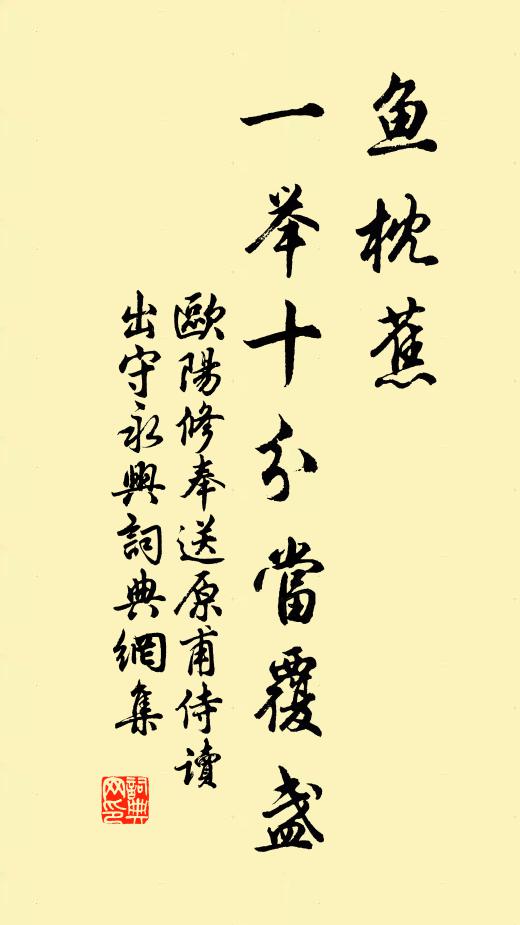 鱼枕蕉
一举十分當覆盏
歐陽修奉送原甫侍讀
出守永興詞典網集
詞典网印